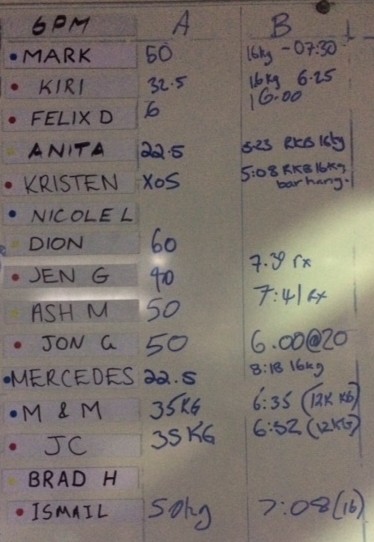 6PM A B
MARK 50 16kg - 07:30
KIRI 32.5 16kg 6.25
FELIX D 6 16.00
ANITA 22.5 5:23 RKB 16kg
KRISTEN XOS 5:08 RKB 16kg
bar hang.
NICOLE L
DION 60
JEN G 40 7.39 rx
ASH M 50 7:41 rx
JON G 50 6.00@20
MERCEDES 22.5 8:18 16kg
M & M 35KG 6:35 (12K KB)
JC 35KG 6:52 (12KG)
BRAD H
ISMAIL 50kg 7:08 (16)